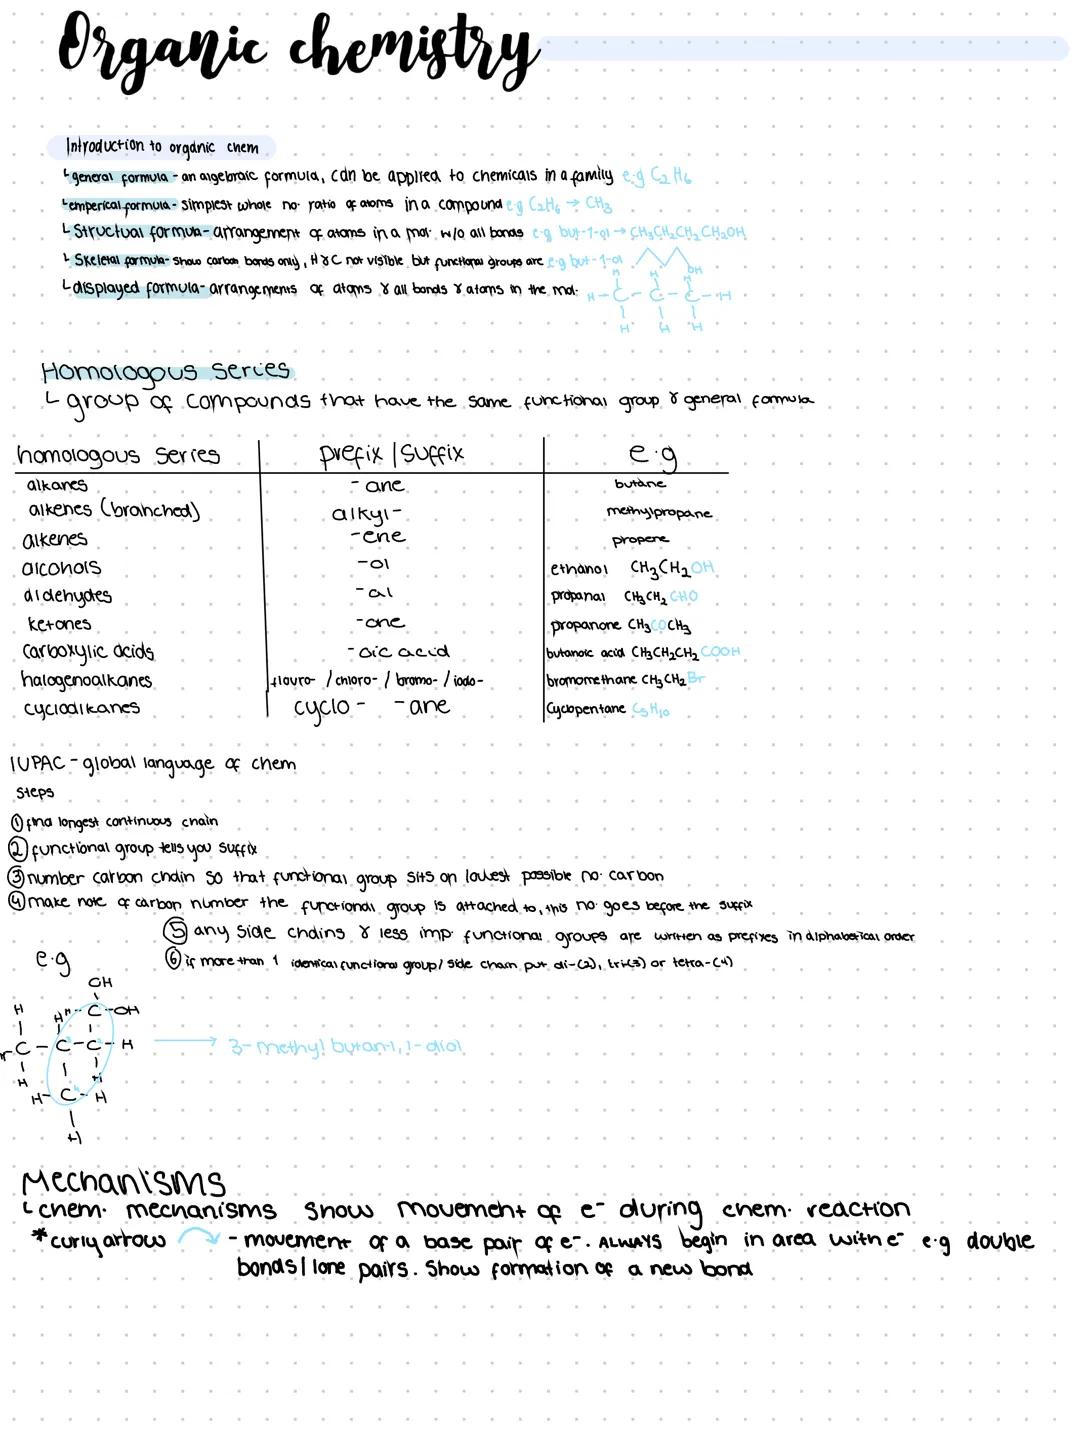 Organic chemistry
Introduction to organic chem
general formula - an algebraic formula, can be applied to chemicals in a family e.g C2H6
emperical formula - simplest whole no. ratio of atoms in a compound e.g C2H6 → CH3
Structual formula - arrangement of atoms in a mol. w/o all bonds e.g but-1-ol → CH3CH2CH2CH2OH
Skeletal formula - show carbon bonds only, H & C not visible but functional groups are e.g but-1-ol OH
displayed formula - arrangements of atoms & all bonds & atoms in the mol.
H H
H - C - C - C - H
H H H
Homologous series
group of compounds that have the same functional group & general formula
homologous series prefix / suffix e.g
alkanes -ane butane
alkenes (brainched) alkyl- methylpropane
alkenes -ene propene
alcohols -ol ethanol CH3CH2OH
aldehydes -al propanal CH3CH2CHO
ketones -one propanone CH3COCH3
carboxylic acids -oic acid butanoic acid CH3CH2CH2COOH
halogenoalkanes flouro- / chloro- / bromo- / iodo- bromomethane CH3CH2Br
cycloalkanes cyclo- -ane Cyclopentane C5H10
IUPAC - global language of chem
Steps
① find longest continuous chain
② functional group tells you suffix
③ number carbon chain so that functional group sits on lowest possible no. carbon
④ make note of carbon number the functional group is attached to, this no. goes before the suffix
⑤ any side chains & less imp. functional groups are written as prefixes in alphabetical order
⑥ if more than 1 identical functional group / side chain put di-(2), tri(3) or tetra-(4)
e.g
OH
H H - C - OH
C - C - C - H → 3-methyl butan-1,1-diol
H H
H - C - H
H
Mechanisms
chem. mechanisms show movement of e- during chem. reaction
*curly arrow - movement of a base pair of e-. ALWAYS begin in area with e- e.g double
bonds / lone pairs. Show formation of a new bond